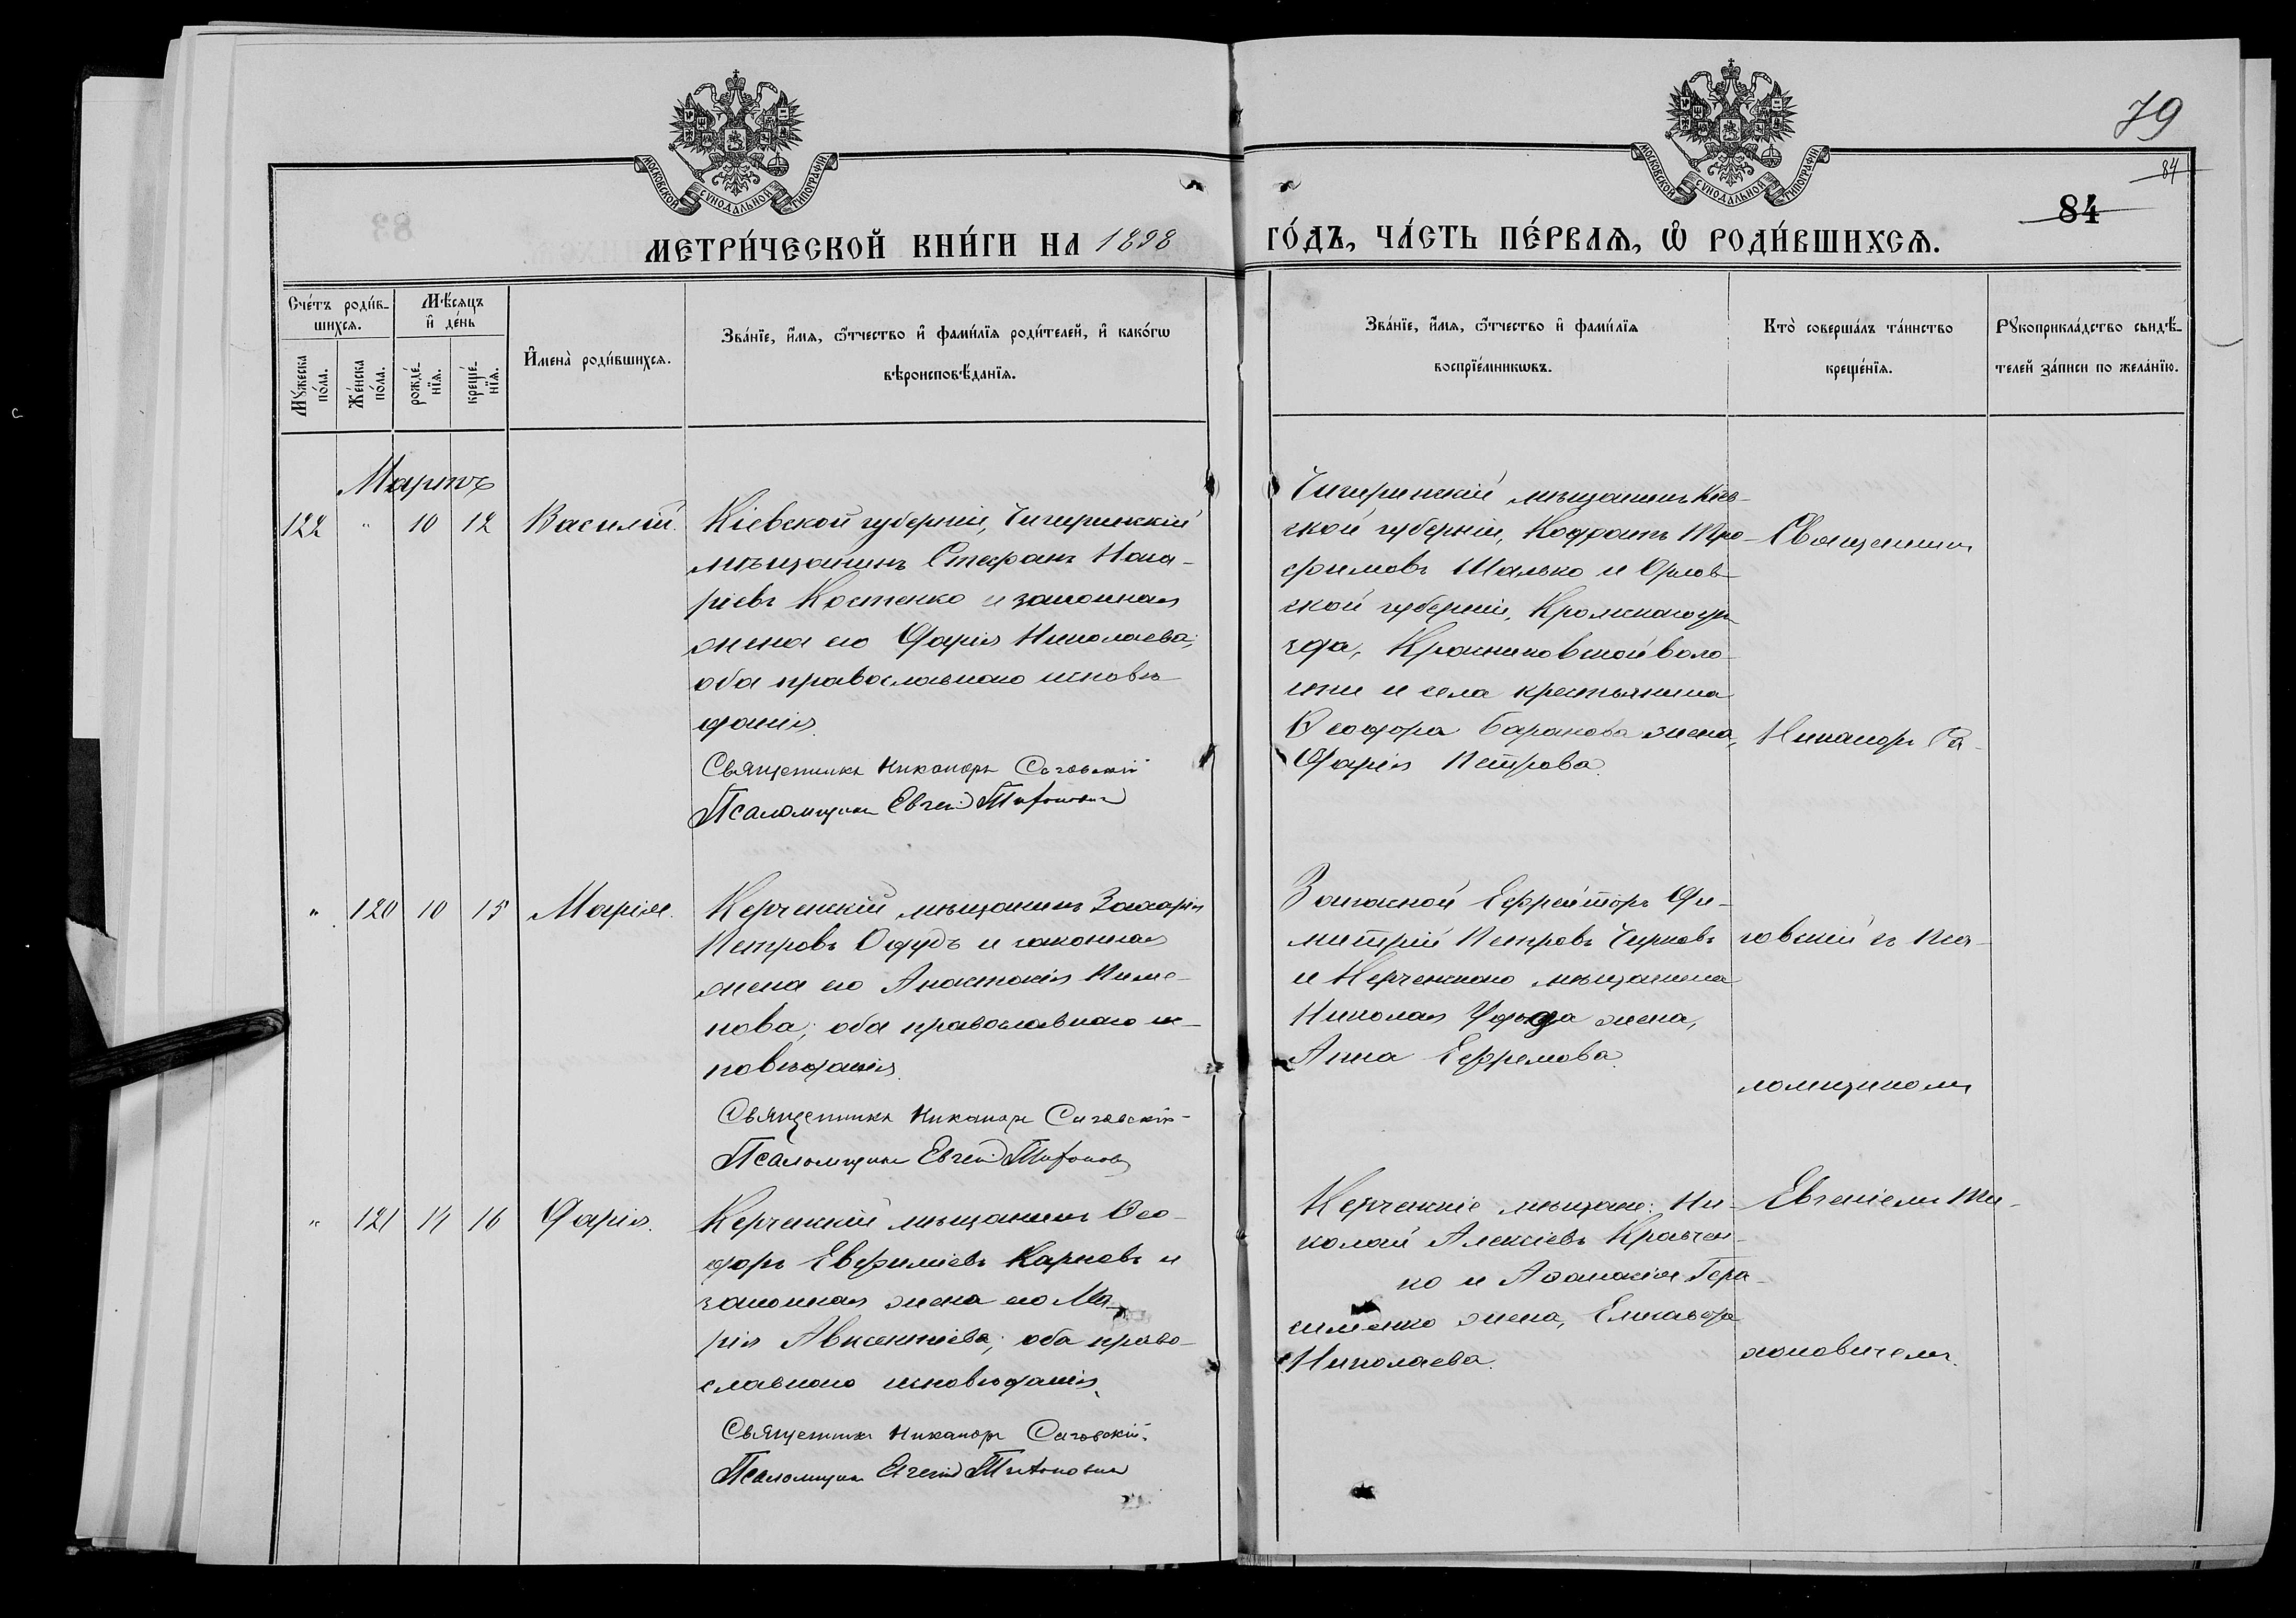 79
84
84
МОСКОВСКОЙ СѴНОДАЛЬНОЙ ТИПОГРАФІИ
МОСКОВСКОЙ СѴНОДАЛЬНОЙ ТИПОГРАФІИ
МЕТРИ́ЧЕСКОЙ КНИ́ГИ НА 1898
ГО́ДЪ, ЧА́СТЬ ПЕ́РВАѦ, Ѡ҆ РОДИ́ВШИХСѦ.
Сче́тъ роди́в-
шихсѧ.
Мꙋ́жеска по́ла.
Же́нска по́ла.
Мѣ́сѧцъ
и҆ де́нь
рожде́-
нїѧ.
креще́-
нїѧ.
И҆мена̀ роди́вшихсѧ.
Зва́нїе, и҆́мѧ, ѻ҆́тчество и҆ фами́лїѧ роди́телей, и҆ како́гѡ
вѣроисповѣ́данїѧ.
Зва́нїе, и҆́мѧ, ѻ҆́тчество и҆ фами́лїѧ
воспрїе́мникѡвъ.
Кто̀ соверша́лъ та́инство
креще́нїѧ.
Рꙋкоприкла́дство свидѣ́-
телей за́писи по жела́нїю.
Мартъ
122 " 10 12 Василій.
Кіевской губерніи, Чигиринскій
мѣщанинъ Стефанъ Мака-
ріевъ Костенко и законная
жена его Дарія Николаева;
оба православнаго исповѣ-
данія.
Священникъ Никаноръ Саговскій
Псаломщикъ Евгеній Тихоновичъ
Чигиринскій мѣщанинъ Кіев-
ской губерніи, Кодратъ Тро-
фимовъ Шалько и Орлов-
ской губерніи, Кромскаго уѣ-
зда, волο-
сти и села крестьянина
Ѳеодора Баранова жена,
Дарія Петрова.
Священникъ
Никаноръ Са-
" 120 10 15 Марія.
Керченскій мѣщанинъ Захарія
Петровъ и законная
жена его Анастасія Пиме-
нова; оба православнаго ис-
повѣданія.
Священникъ Никаноръ Саговскій
Псаломщикъ Евгеній Тихоновичъ
Запасной Ефрейторъ Ди-
митрій Петровъ Чирковъ
и Керченскаго мѣщанина
Николая жена,
Анна Ефремова.
говскій съ пса-
ломщикомъ
" 121 14 16 Дарія.
Керченскій мѣщанинъ Ѳео-
доръ Евфиміевъ Карповъ и
законная жена его Ма-
рія Авксентіева; оба право-
славнаго исповѣданія.
Священникъ Никаноръ Саговскій.
Псаломщикъ Евгеній Тихоновичъ
Керченскіе мѣщане: Ни-
колай Алексіевъ Кравчен-
ко и Аѳанасія Гера-
сименко жена, Елисавета
Николаева.
Евгеніемъ Ти-
хоновичемъ.